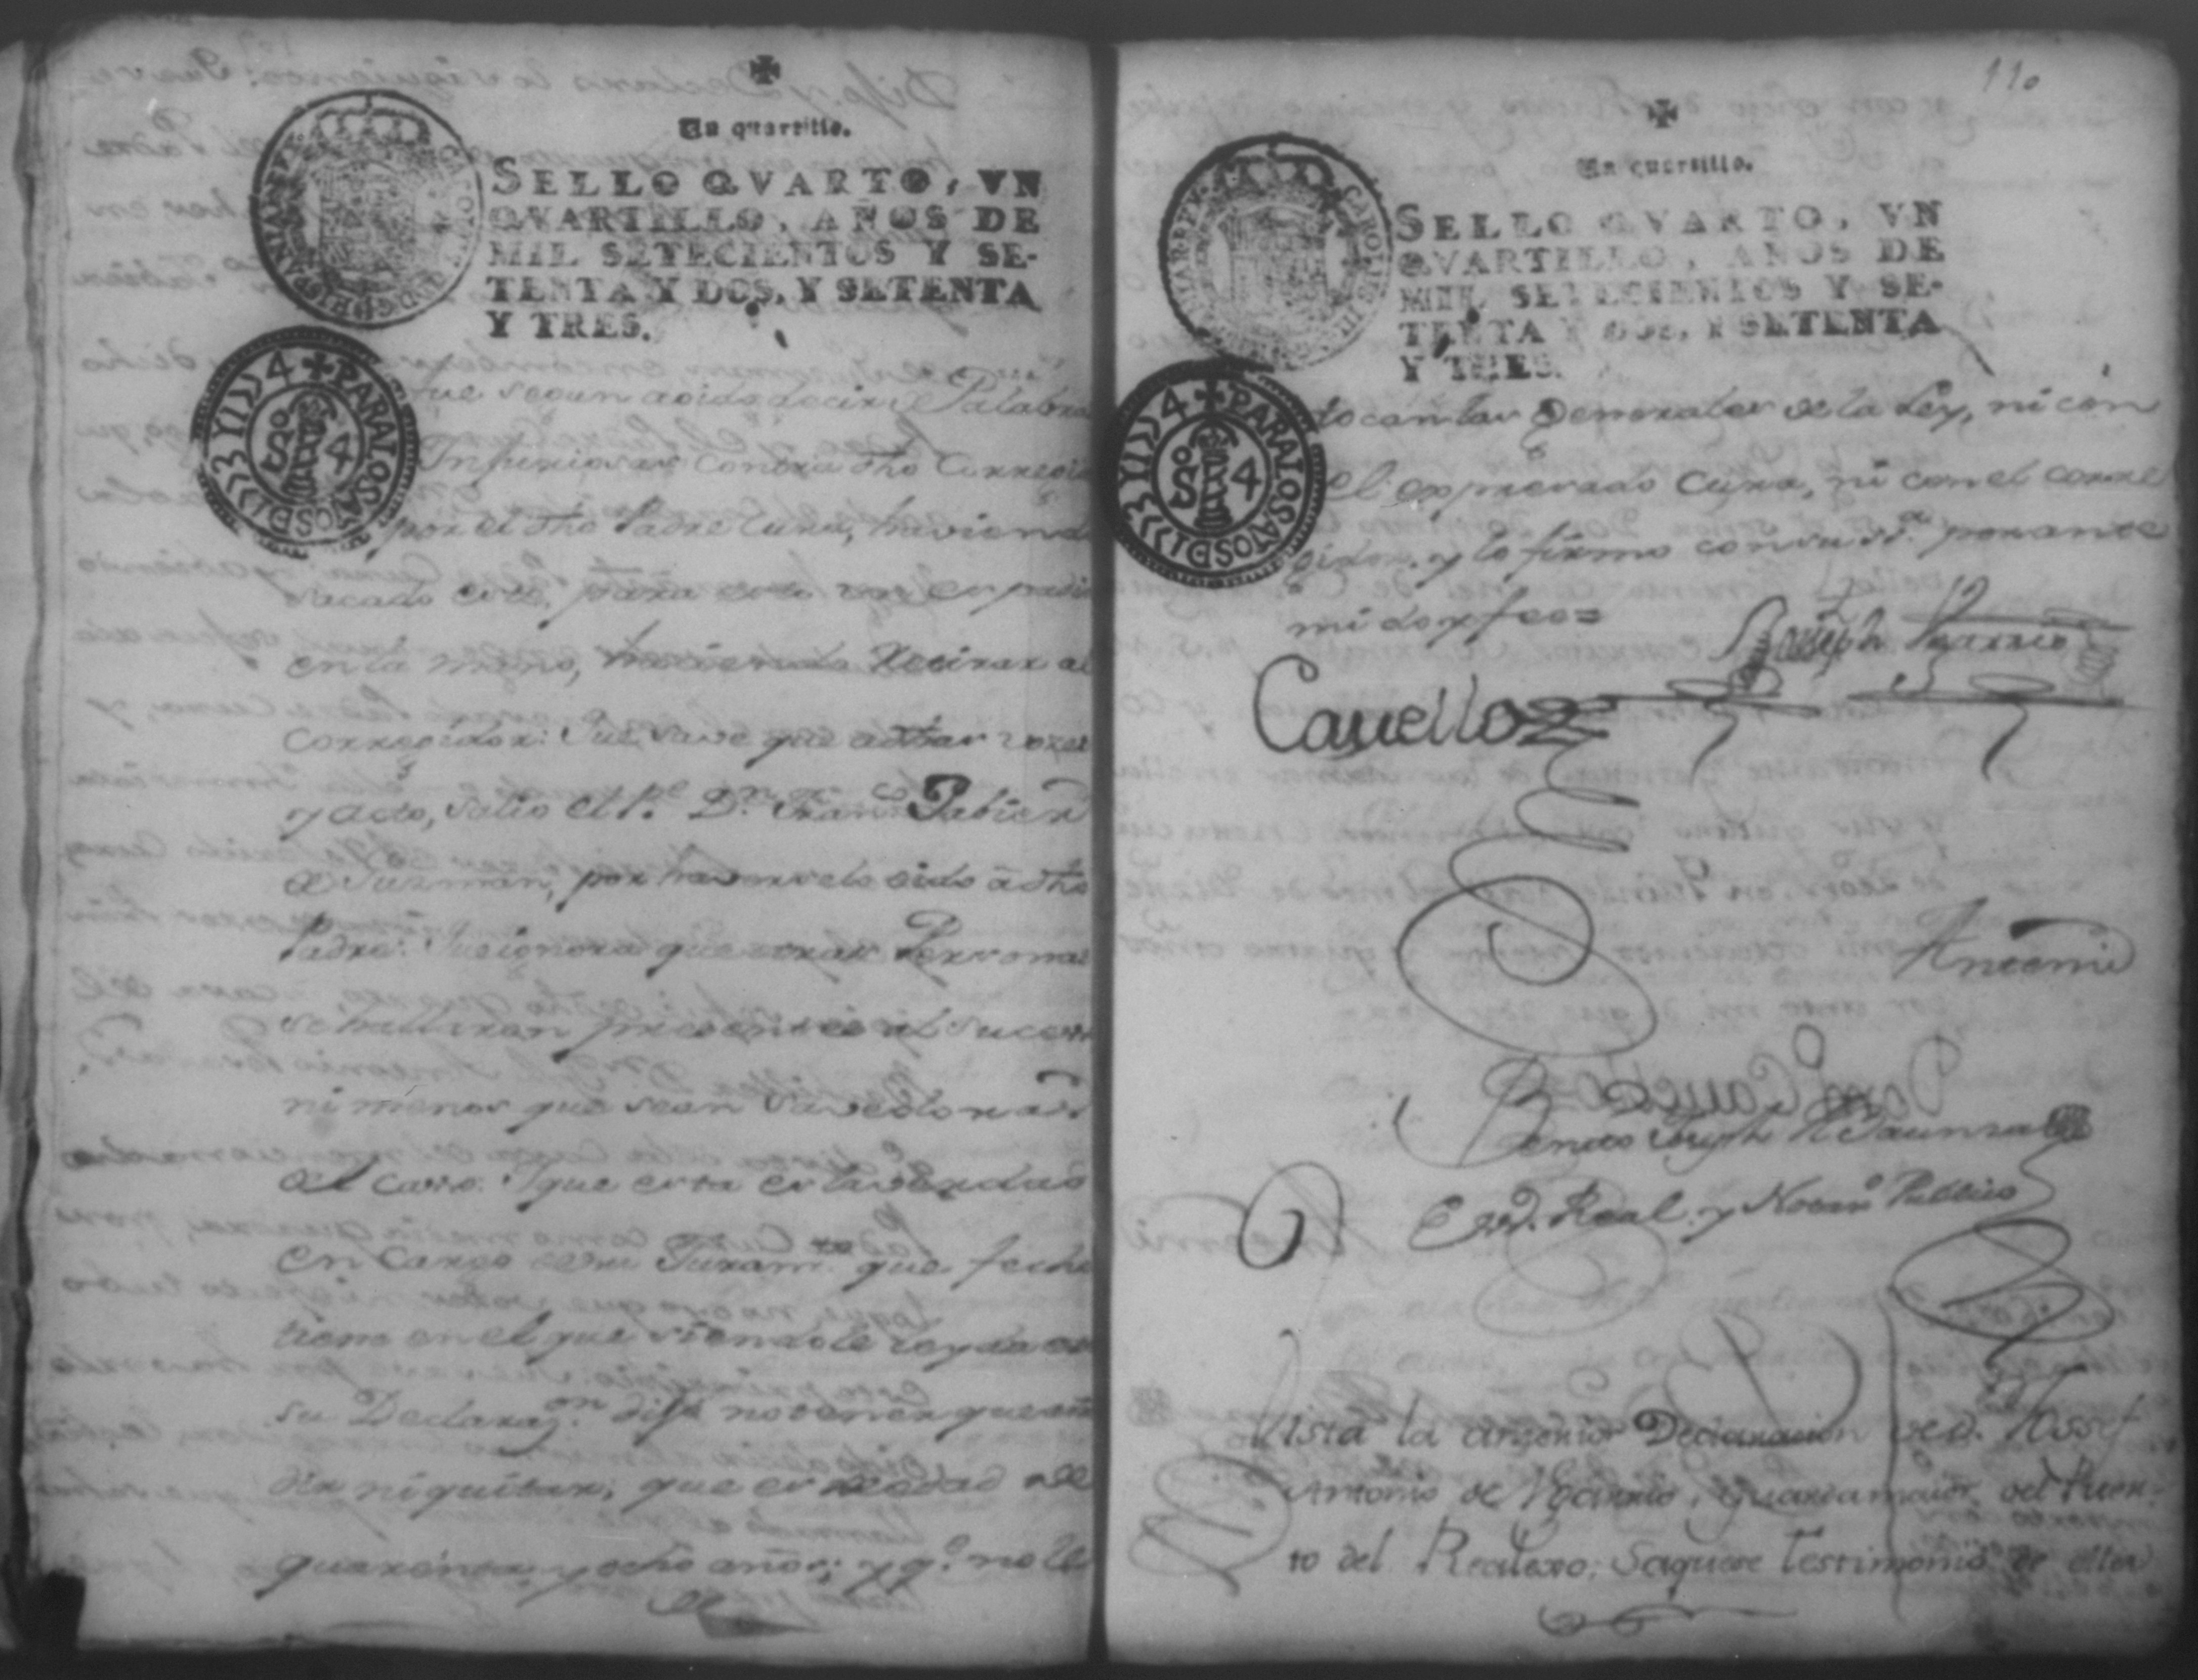 Un quartillo.
SELLO QVARTO, VN
QVARTILLO, AÑOS DE
MIL SETECIENTOS Y SE-
TENTA Y DOS, Y SETENTA
Y TRES.
PARA LOS AÑOS DE
So 4
que segun a oido decir Palabras
Injuriosas contra dho Corregi
por el dho Padre Cura, haviend
sacado este, para esto un espadi
en la mano, haciendo retirar al
corregidor: Que save que a estas vozes
y acto, salio el Pe. Dn. Franco. Fabien
de Guzman, por haverselo oido a dho
Padre: Que ignora que otras Personas
se hallaran presentes al suceso
ni menos que sean savedoras
del caso. Y que esta es la verdad
en cargo de su Juramto. que fecho
tiene en el que siendole leyda es
su Declarazon. dijo no tener que aña
dir ni quitar, que es de edad de
quarenta y ocho años; y qe. no le
110
Un quartillo.
SELLO QVARTO, VN
QVARTILLO, AÑOS DE
MIL SETECIENTOS Y SE-
TENTA Y DOS, Y SETENTA
Y TRES.
PARA LOS AÑOS DE
So 4
tocan las Generales de la Ley, ni con
el expresado Cura, ni con el corre
gidor. y lo firmo con su sra. por ante
mi doy fee=
Joseph Ygarrio
Cauello
Antemi
Benito Joseph
Essno. Real y Notario. Publico
Vista la anterior Declaracion de d. Josef
Antonio de Ygarrio, Guarda maior del Puer-
to del Realexo; Saquese testimonio de ella